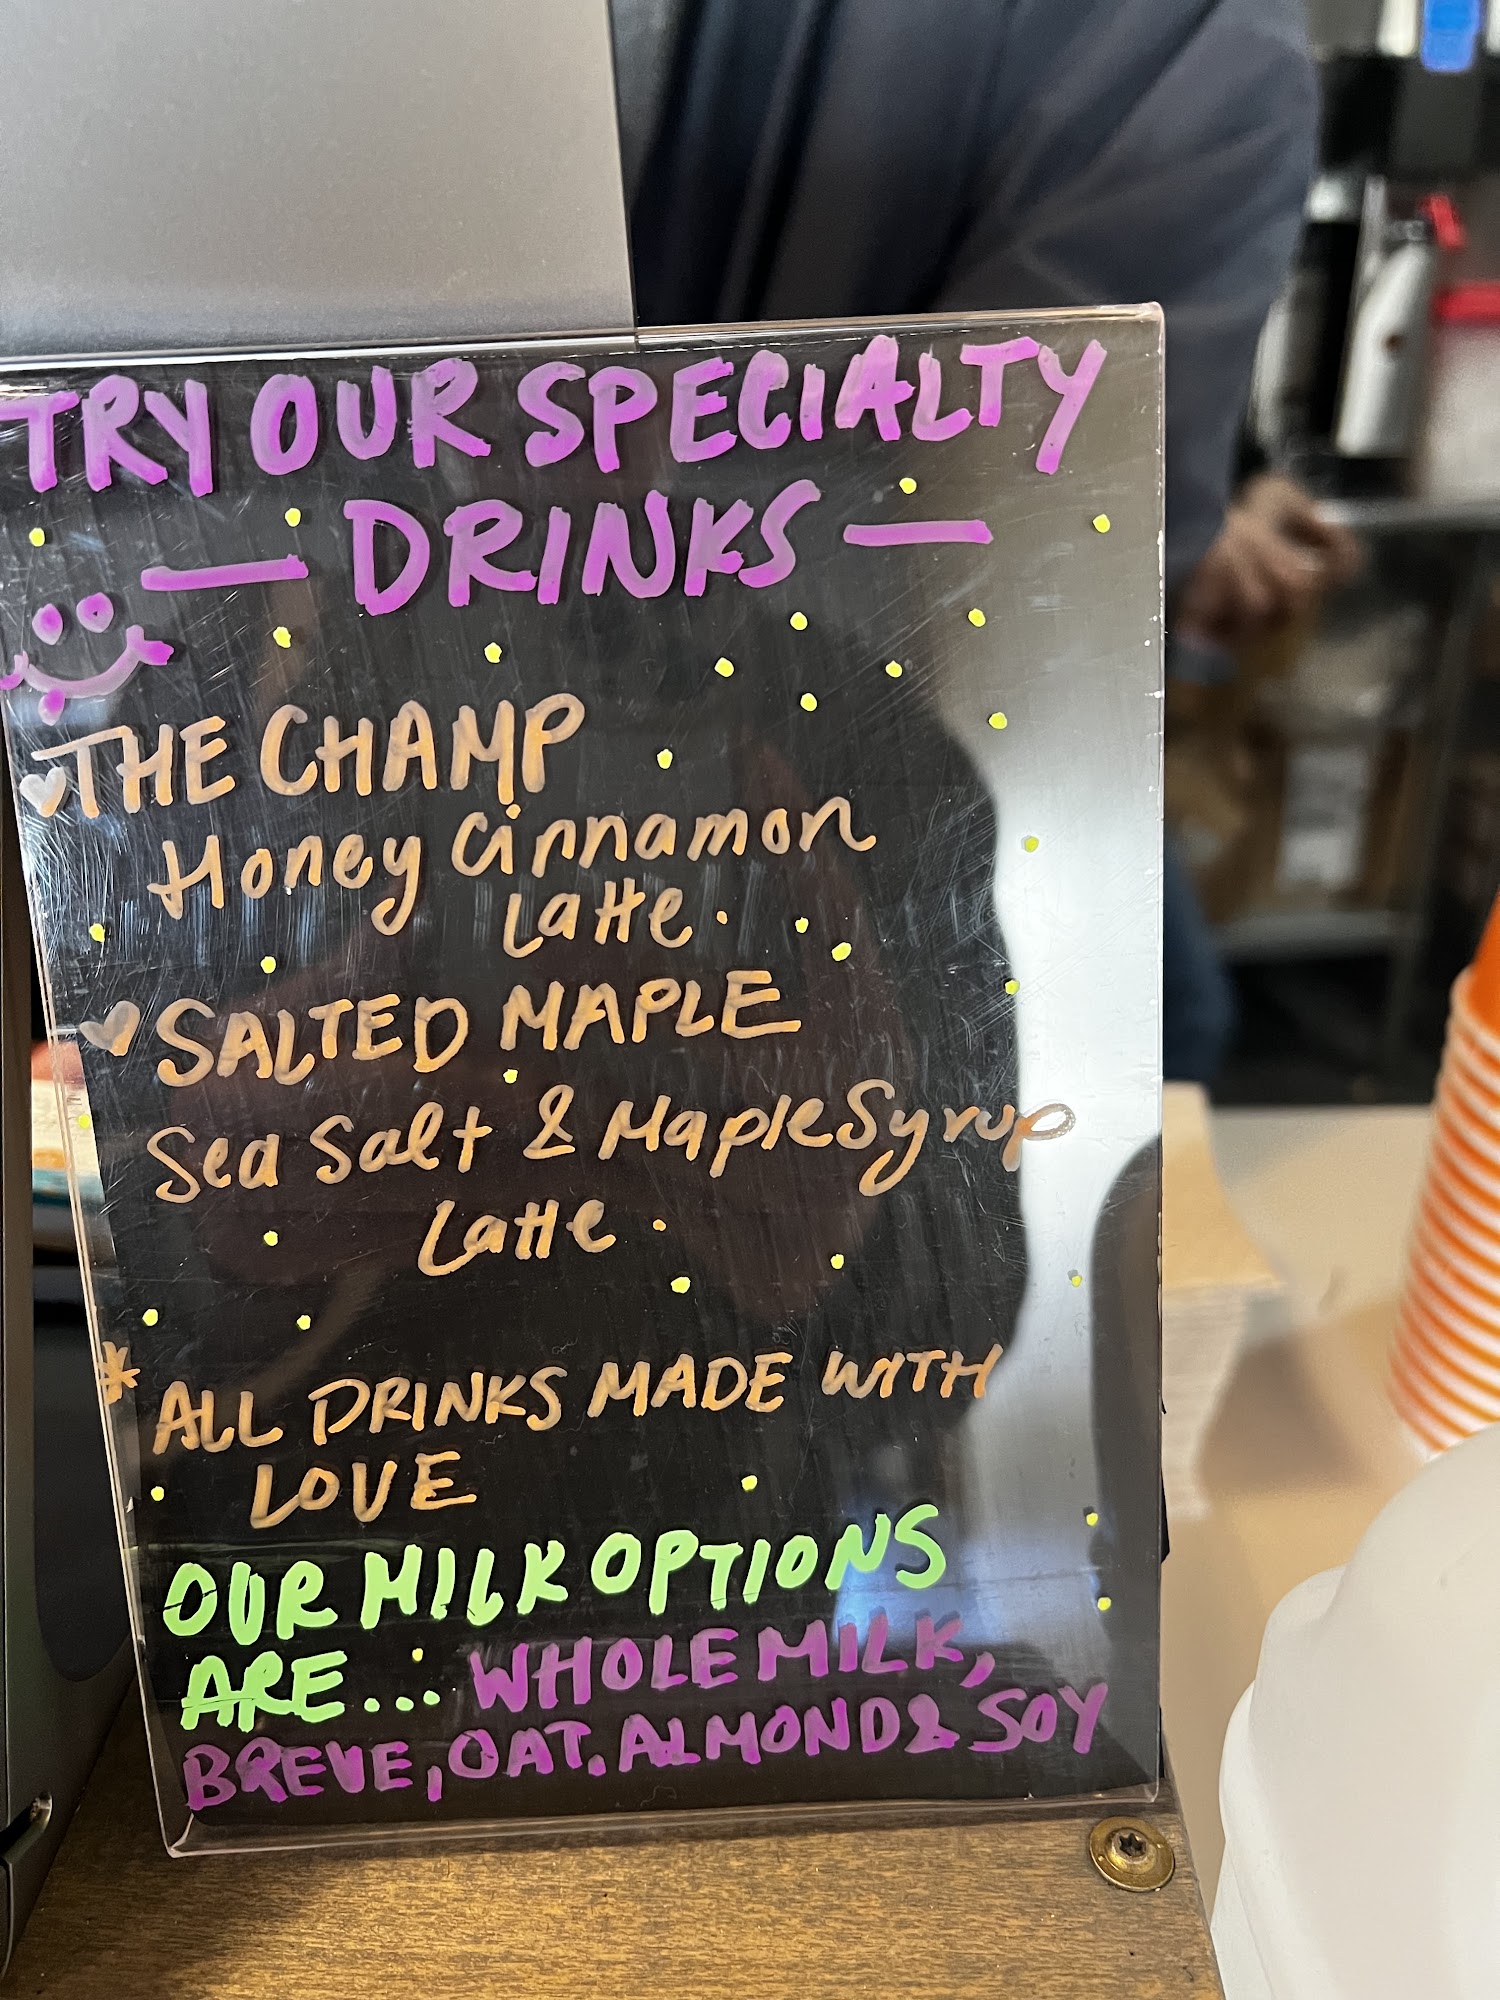 TRY OUR SPECIALTY
— DRINKS —
THE CHAMP
Honey Cinnamon
Latte.
SALTED MAPLE
Sea Salt & Maple Syrup
Latte.
* ALL DRINKS MADE WITH
LOVE
OUR MILK OPTIONS
ARE... WHOLE MILK,
BREVE, OAT, ALMOND & SOY